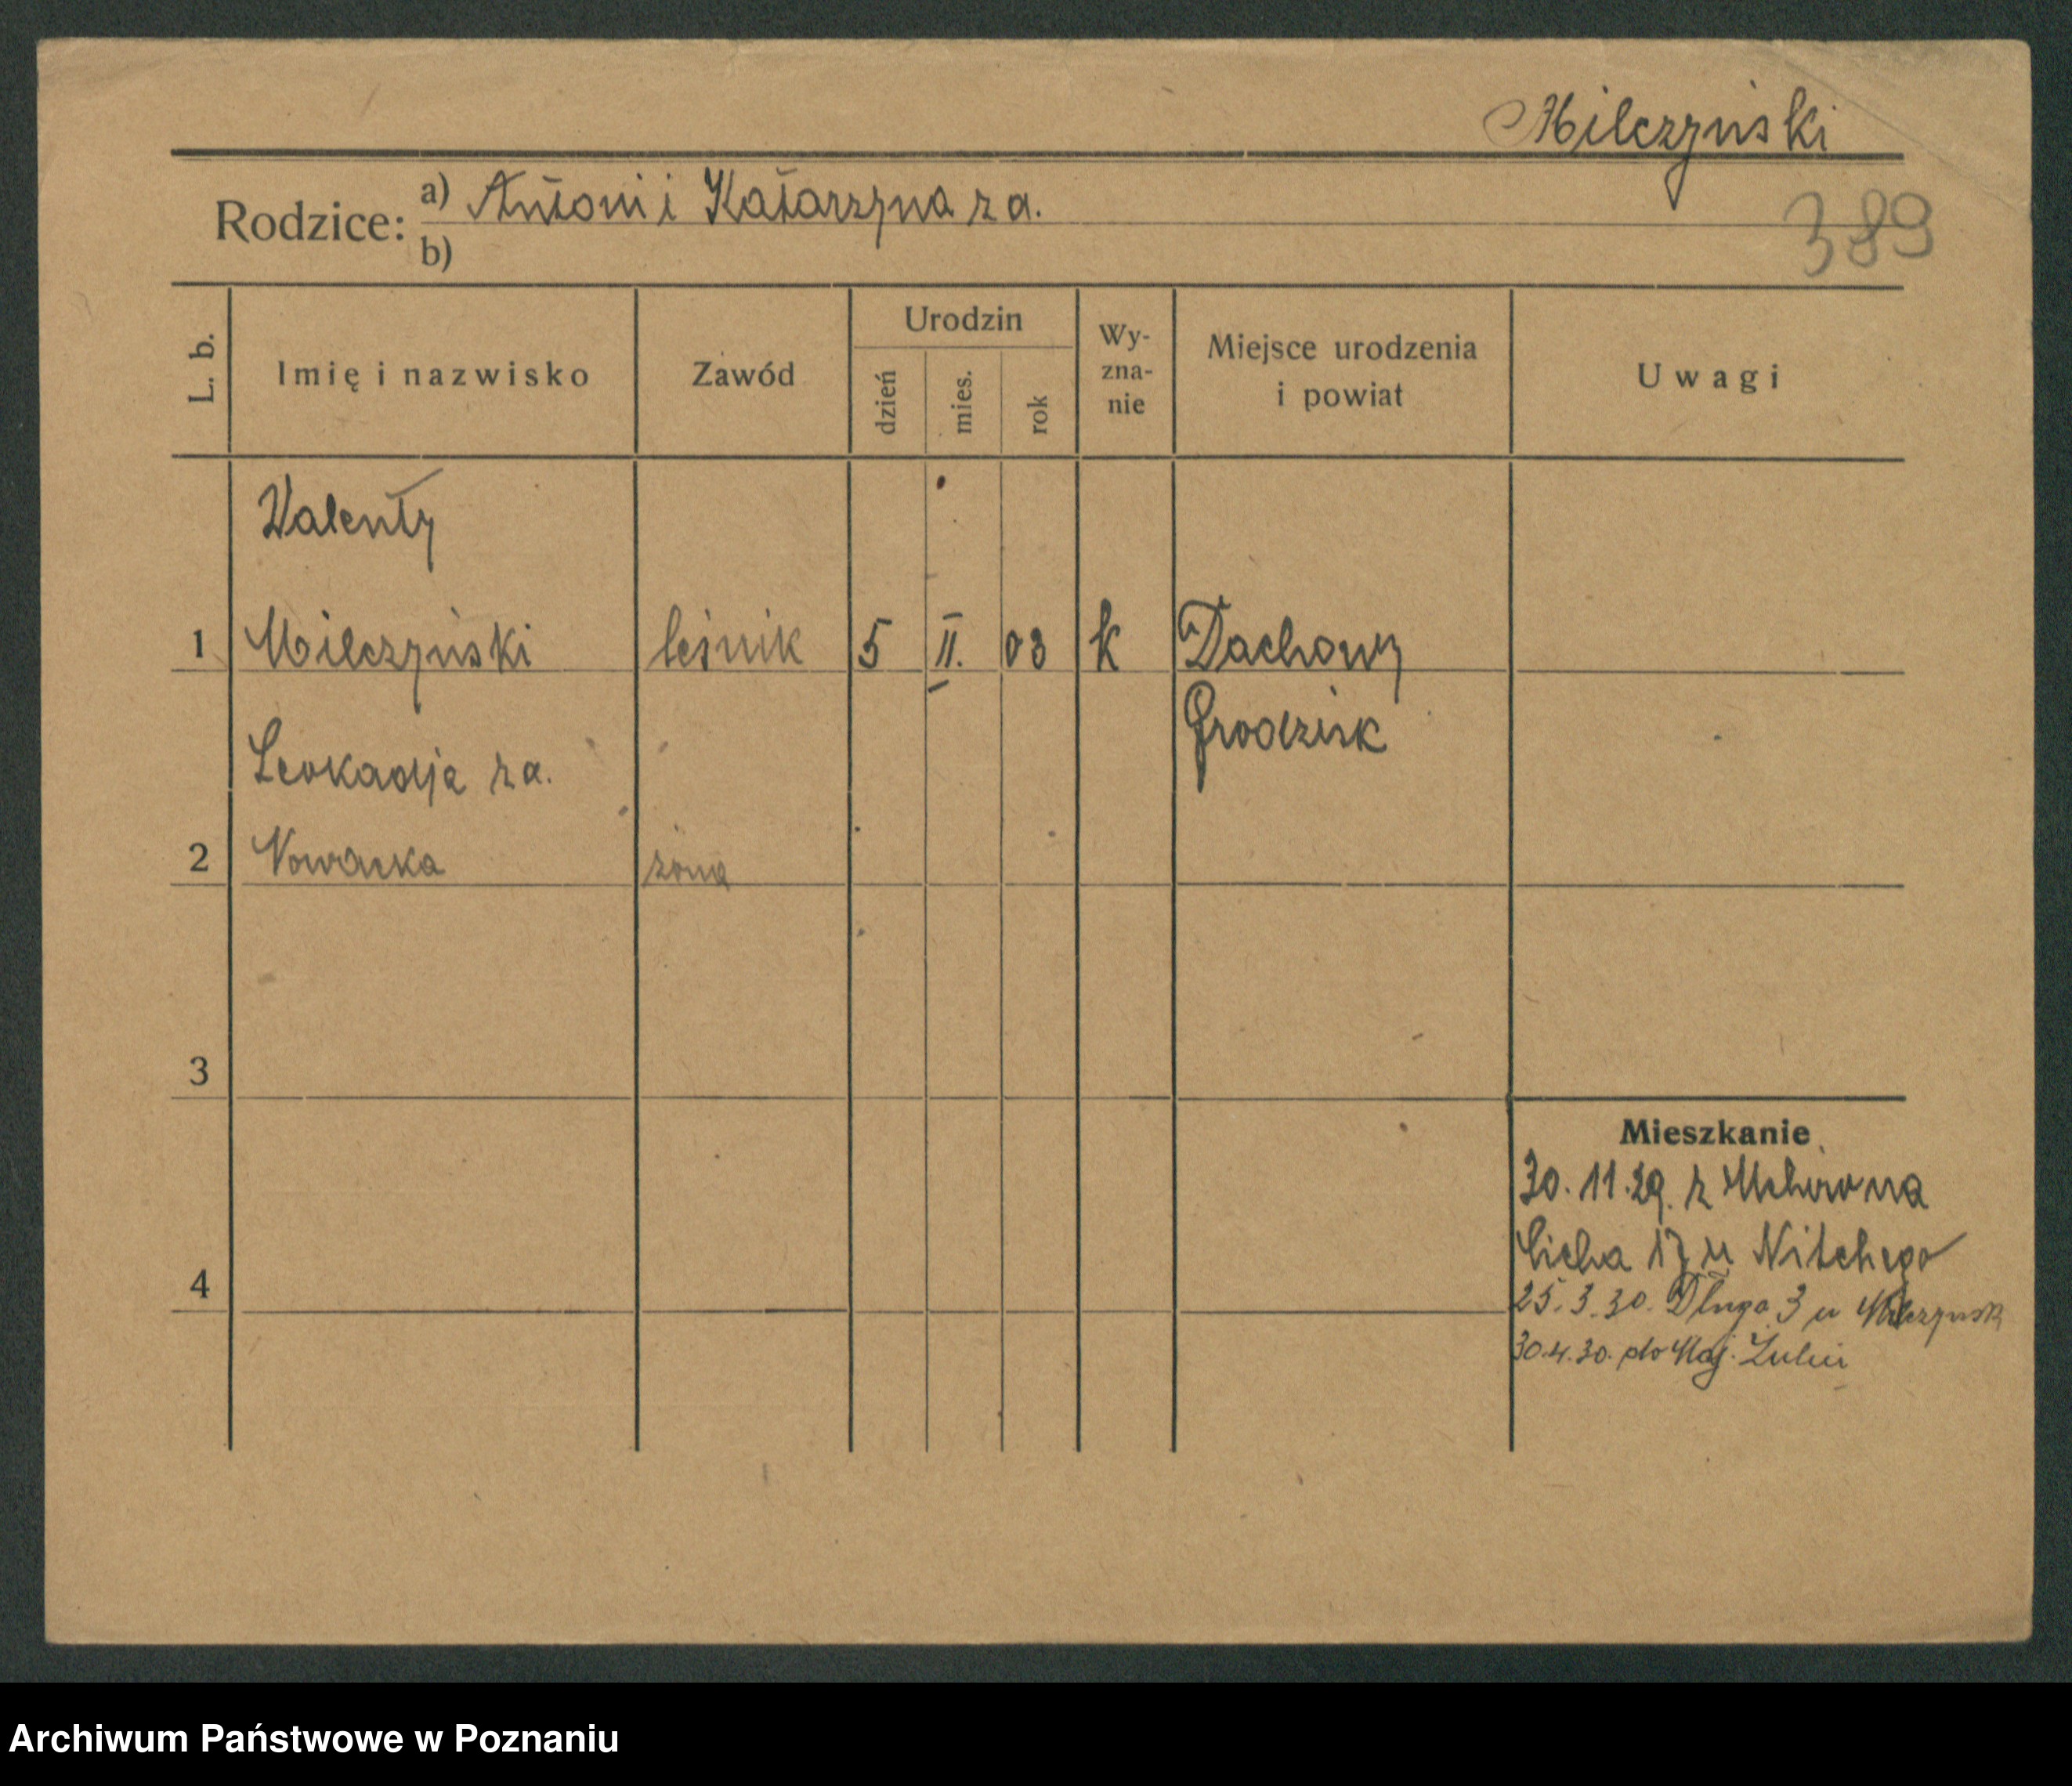 Milczyński
Rodzice: a) Antoni i Katarzyna za.
b)
389
L. b.
Imię i nazwisko
Zawód
Urodzin
dzień
mies.
rok
Wy-
zna-
nie
Miejsce urodzenia
i powiat
Uwagi
Walenty
1 Milczyński leśnik 5 II. 03 k Dachowy
Grodzisk
Leokadja za.
2 Nowacka żona
3
4
Mieszkanie
30.11.29. z na
Cicha 17 u Nitchego
25.3.30. Długa 3 u Milczyńsk
30.4.30. do Maj.
Archiwum Państwowe w Poznaniu